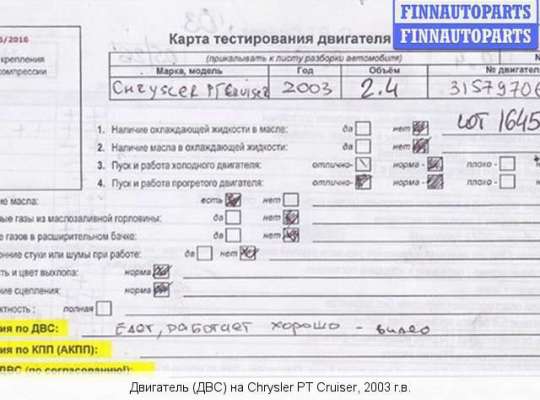 FINNAUTOPARTS
FINNAUTOPARTS
/2016
крепления
омпрессии
Карта тестирования двигателя
(прикалывать к листу разборки автомобиля)
Марка, модель Год Объём № двигателя
Chrysler PT Cruiser 2003 2.4 31579706
LOT 1645
1. Наличие охлаждающей жидкости в масле: да нет
2. Наличие масла в охлаждающей жидкости: да нет
3. Пуск и работа холодного двигателя: отлично- норма - плохо -
4. Пуск и работа прогретого двигателя: отлично- норма - плохо -
ие масла: есть нет
вые газы из маслозаливной горловины: да нет
е газов в расширительном бачке: да нет
онние стуки или шумы при работе: да нет
сть и цвет выхлопа: норма
ние сцепления: норма
ктность : полная
ия по ДВС: Едет, работает хорошо - видео
ия по КПП (АКПП):
ДВС (по согласованию!):
Двигатель (ДВС) на Chrysler PT Cruiser, 2003 г.в.